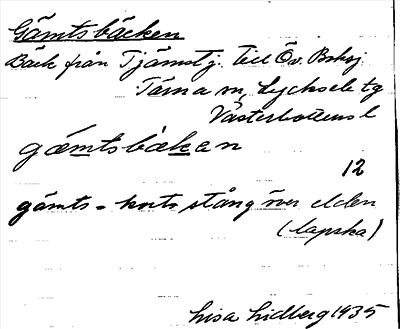 Gämtsbäcken
Bäck från Tjämstj. till Öv. Boksj.
Tärna sn, Lycksele tg
Västerbottens l
gämtsbäkən
12
gämts = korta stång över elden
(lapska)
Lisa Lidberg 1935